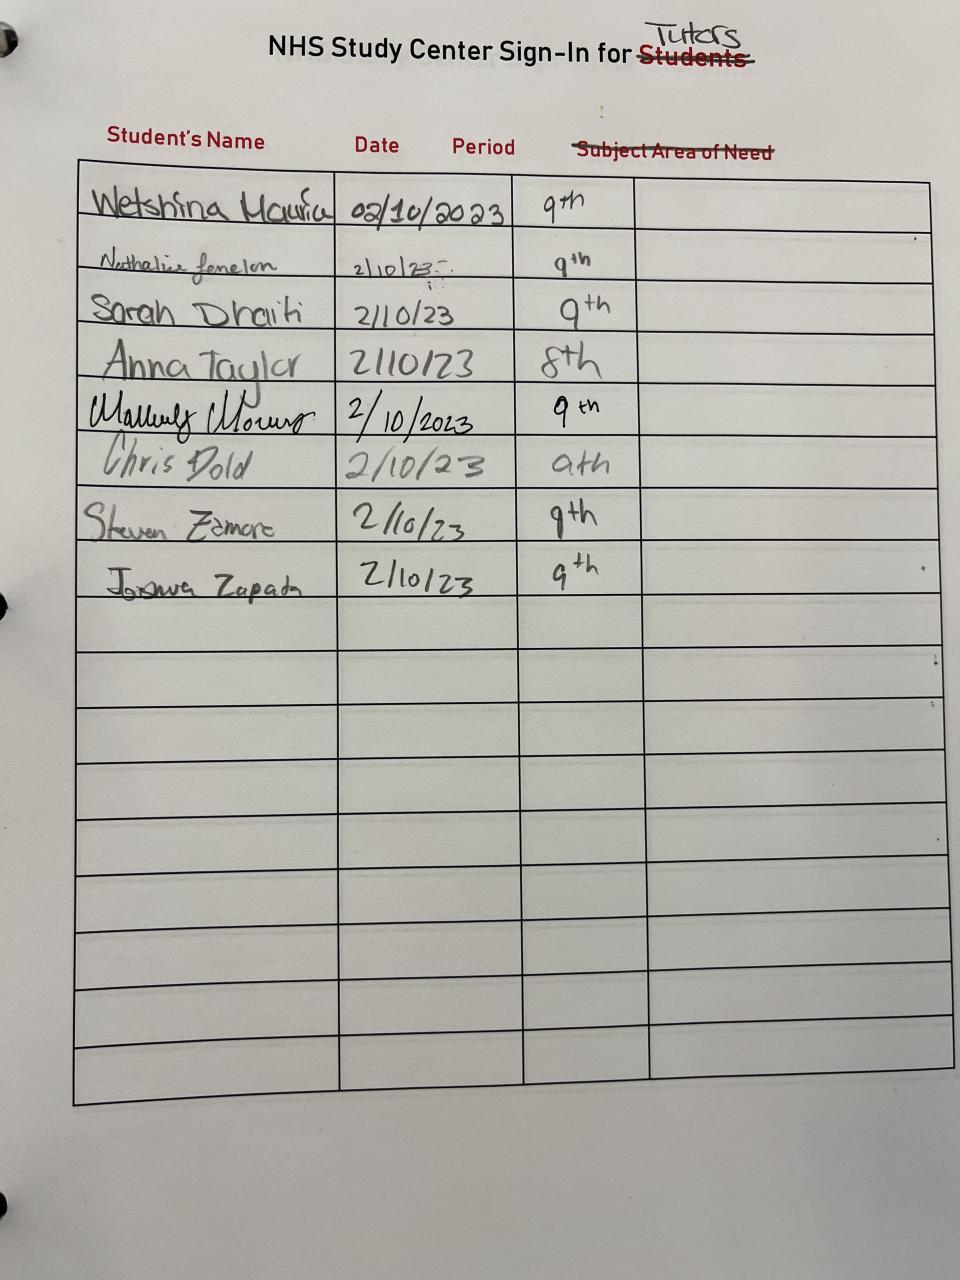 Tutors
NHS Study Center Sign-In for Students
Student's Name Date Period Subject Area of Need
Wetshina Mauria 02/10/2023 9th
Nathalie fenelon 2/10/23 9th
Sarah Dhaiti 2/10/23 9th
Anna Taylor 2/10/23 8th
2/10/2023 9th
Chris Dold 2/10/23 9th
Steven Zamora 2/10/23 9th
Joshua Zapata 2/10/23 9th